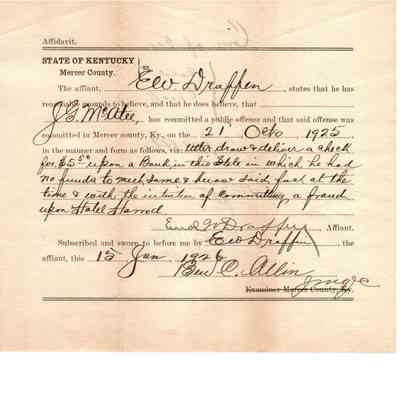 Affidavit.
STATE OF KENTUCKY
Mercer County.
The affiant, EW Draffen, states that he has
reasonable grounds to believe, and that he does believe, that
J.B. McAtee, has committed a public offense and that said offense was
committed in Mercer county, Ky., on the 21 Octo, 1925,
in the manner and form as follows, viz: utter draw & deliver a check
for $5.50 upon a Bank in this State in which he had
no funds to meet same & knew said fact at the
time & with the intention of Committing a fraud
upon Hotel Harrod
Draffen, Affiant.
Subscribed and sworn to before me by EW Draffen, the
affiant, this 15 Jan. 1926
Ben C. Allin
Judge
Examiner Mercer County, Ky.